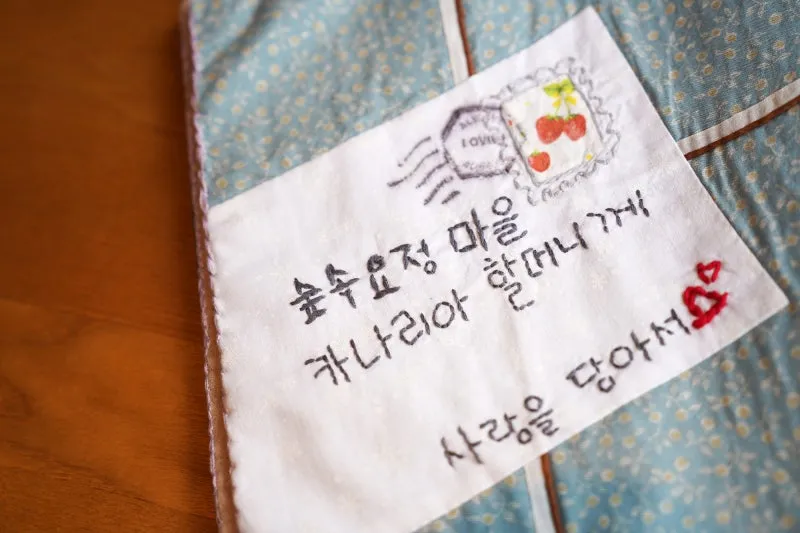 LOVE
숲속요정 마을
카나리아 할머니께
사랑을 담아서